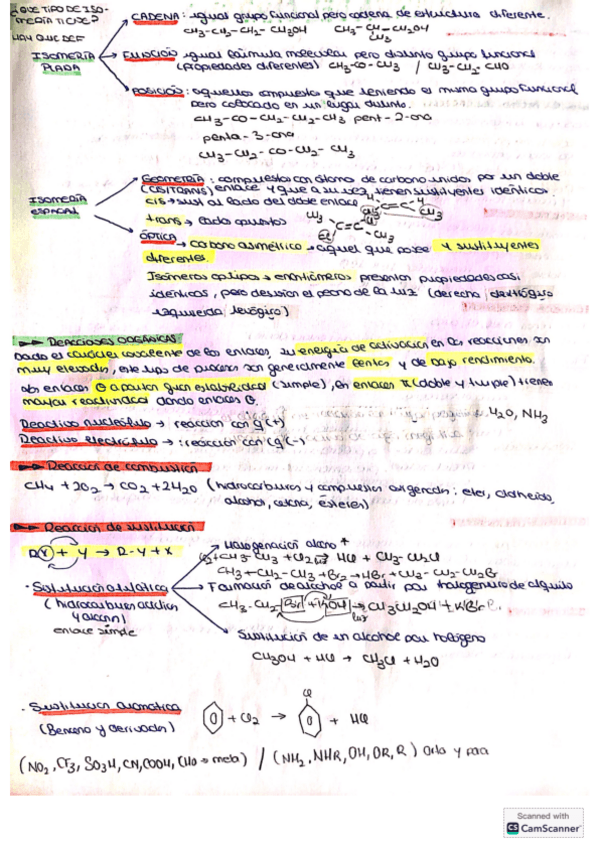 ¿QUE TIPO DE ISOMERÍA TIENE?
HAY QUE DEF
ISOMERÍA PLANA
CADENA: igual grupo funcional pero cadena de estructura diferente.
CH3-CH2-CH2-CH2OH CH3-CH-CH2OH
CH3
FUNCIÓN igual fórmula molecular pero distinto grupo funcional
(propiedades diferentes) CH3-CO-CH3 / CH3-CH2-CHO
POSICIÓN: aquellos compuestos que teniendo el mismo grupo funcional
pero colocado en un lugar distinto.
CH3-CO-CH2-CH2-CH3 pent-2-ona
penta-3-ona
CH3-CH2-CO-CH2-CH3
ISOMERÍA ESPACIAL
GEOMETRÍA: compuestos con átomo de carbono unidos por un doble
(CIS TRANS) enlace y que a su vez tienen sustituyentes idénticos.
cis → sust al lado del doble enlace
C=C
CH3
trans → lados opuestos
CH3
C=C
CH3
ÓPTICA
→ carbono asimétrico → aquel que posee 4 sustituyentes
diferentes.
Isómeros ópticos → enantiómeros presentan propiedades casi
idénticas, pero desvían el plano de la luz (derecha dextrógiro
izquierda levógiro)
REACCIONES ORGÁNICAS
Dado el carácter covalente de los enlaces, su energía de activación en las reacciones son
muy elevadas, este tipo de procesos son generalmente lentos y de bajo rendimiento.
Los enlaces σ aportan gran estabilidad (simple), en enlaces π (doble y triple) tienes
mayor reactividad dando enlaces σ.
Reactivo nucleófilo → reacción con q(+) H2O, NH3
Reactivo electrófilo →: reacción con q(-)
Reacción de combustión
CH4 + 2O2 → CO2 + 2H2O (hidrocarburos y compuestos oxigenados: eter, aldheido,
alcohol, cetona, ésteres)
Reacción de sustitución
R-X + Y → R-Y + X
→ Halogenación alcano
CH3-CH3 + Cl2 → HCl + CH3-CH2Cl
CH3-CH2-CH3 + Br2 → HBr + CH3-CH2-CH2Br
· Sustitución alifática
(hidrocarburos acíclicos
y alcano)
enlace simple
→ Formación de alcohol a partir por halogenuro de alquilo
CH3-CH2 Br + KOH → CH3CH2OH + KBr
luz
Sustitución de un alcohol por halógeno
CH3OH + HCl → CH3Cl + H2O
· Sustitución aromática
(Benceno y derivados)
+ Cl2 →
Cl
+ HCl
(NO2, CF3, SO3H, CN, COOH, CHO → meta) / (NH2, NHR, OH, OR, R) Orto y para
Scanned with
CS CamScanner